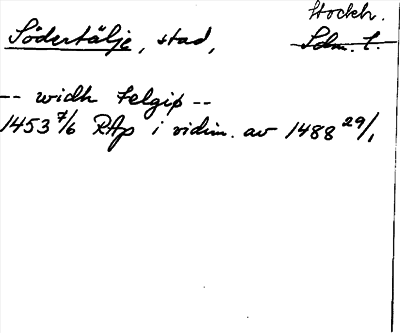 Stockh.
Södertälje, stad, Sdm. l.
-- widh telgip --
1453 7/6 RAp i vidim. av 1488 29/1